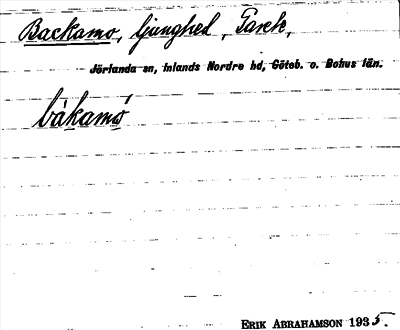 Backamo, ljunghed, Parck,
Jörlanda sn, Inlands Nordre hd, Göteb. o. Bohus län.
bàkamó
ERIK ABRAHAMSON 1935.